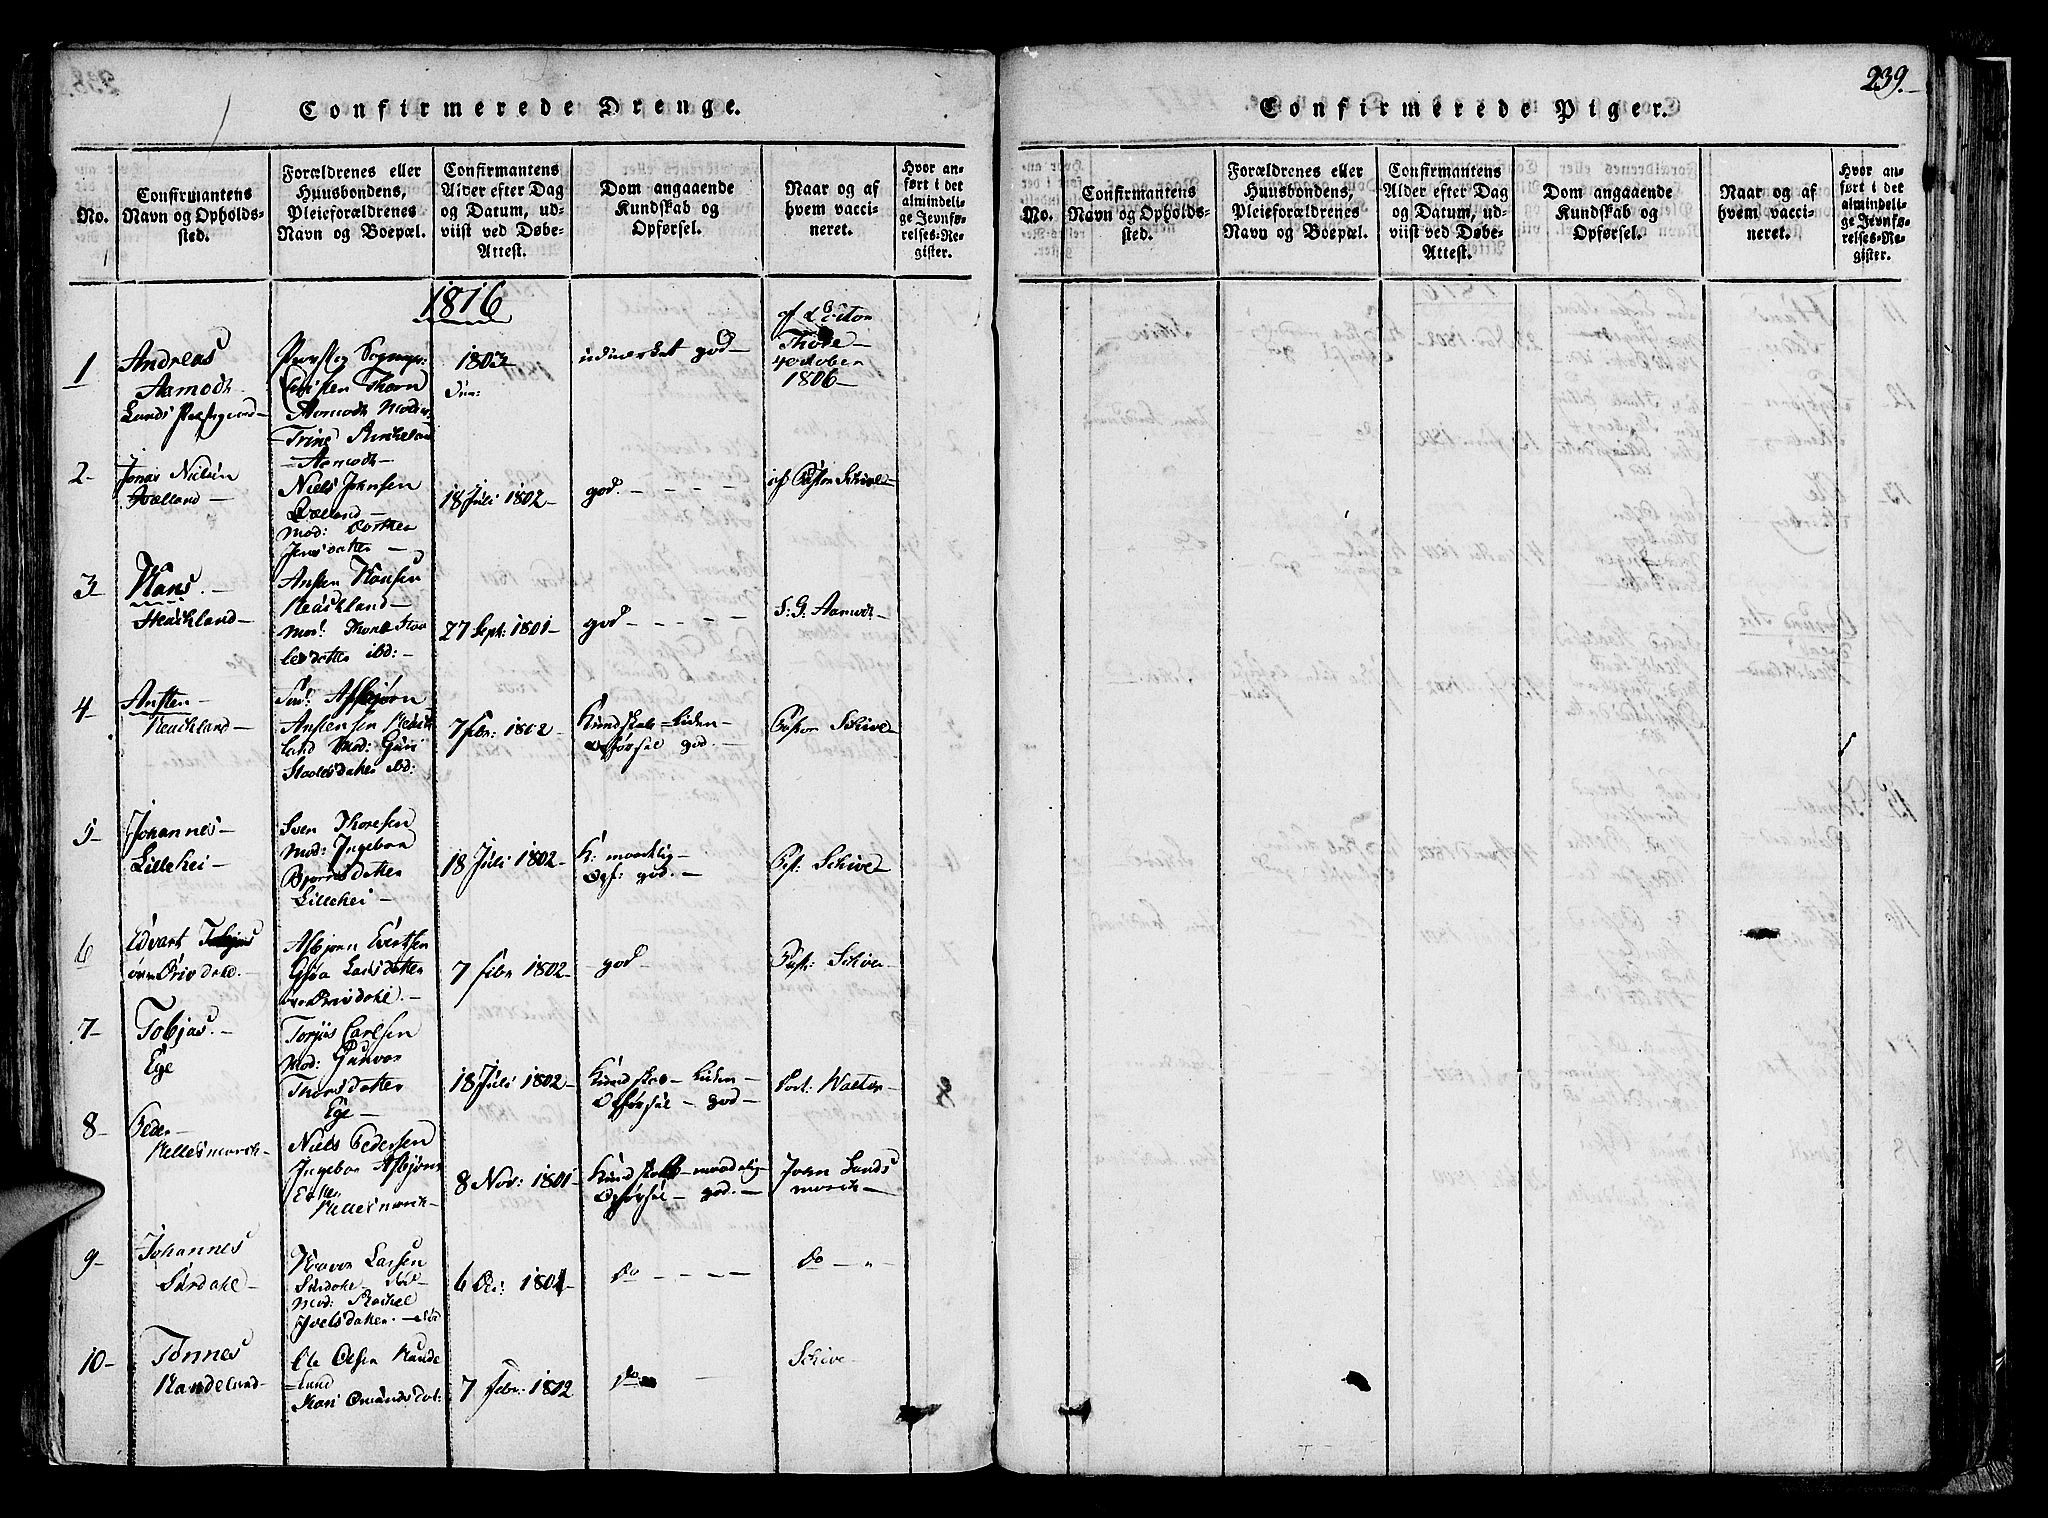 239.
Confirmerede Drenge.
No.
Confirmantens
Navn og Opholds-
sted.
Forældrenes eller
Huusbondens,
Pleieforældrenes
Navn og Boepæl.
Confirmantens
Alder efter Dag
og Datum, ud-
viist ved Døbe-
Attest.
Dom angaaende
Kundskab og
Opførsel.
Naar og af
hvem vacci-
neret.
Hvor an-
ført i det
almindeli-
ge Jevnfø-
relses-Re-
gister.
1816
1
Andreas
Aamodt
Lunds Præstegaard
Provst og Sognepr:
Christen Thorn
Aamodt Moder
Trine
Aamodt
1803
udmerket god
af Doctor
Thode
4 october
1806
2
Jonas Nielsen
Qvælland
Niels Jonsen
Qvælland
Mod: Dorthea
Jensdatter
18 Juli 1802
god
af Pastor Schive
3
Hans
Heschland
Ansten Hansen
Heschland
Mod: Thone
datter ibd:
27 Sept: 1801
god
S: G. Aamodt
4
Ansten
Heschland
Asbjørn
Anstensen Hesch
land Mod: Guri
Stoolesdatter ibd:
7 febr: 1802
Kundskab liden
Opførsel god
Pastor Schive
5
Johannes
Lillehei
Sven Thoresen
Mod: Ingebor
Bjørnsdatter
Lillehei
18 Juli 1802
K: maadelig
Opf: god
Past: Schive
6
Edvart
øvre Ørsdahl
Asbjørn Evertsen
Gjøa Larsdatter
øvre Ørsdahl
7 febr 1802
god
Past: Schive
7
Tobjas
Ege
Torjus Carlsen
Mod: Gunvor
Thorsdatter
Ege
18 Juli 1802
Kundskab liden
Opførsel god
8
Peder
Kellesmark
Niels Pedersen
Ingebor Asbjørns
datter
Kellesmark
8 Nov: 1801
Kundskab maadelig
Opførsel god
John Lands
mark
9
Johannes
Surdahl
Haavor Larsen
Surdahl
Mod: Rachel
Joelsdatter
6 Dec: 1801
do
do
10
Tønnes
Handeland
Ole Olsen Hande
land
Kari Omundsdat:
7 febr: 1802
do
Schive
Confirmerede Piger.
No.
Confirmantens
Navn og Opholds-
sted.
Forældrenes eller
Huusbondens,
Pleieforældrenes
Navn og Boepæl.
Confirmantens
Alder efter Dag
og Datum, ud-
viist ved Døbe-
Attest.
Dom angaaende
Kundskab og
Opførsel.
Naar og af
hvem vacci-
neret.
Hvor an-
ført i det
almindeli-
ge Jevnfø-
relses-Re-
gister.